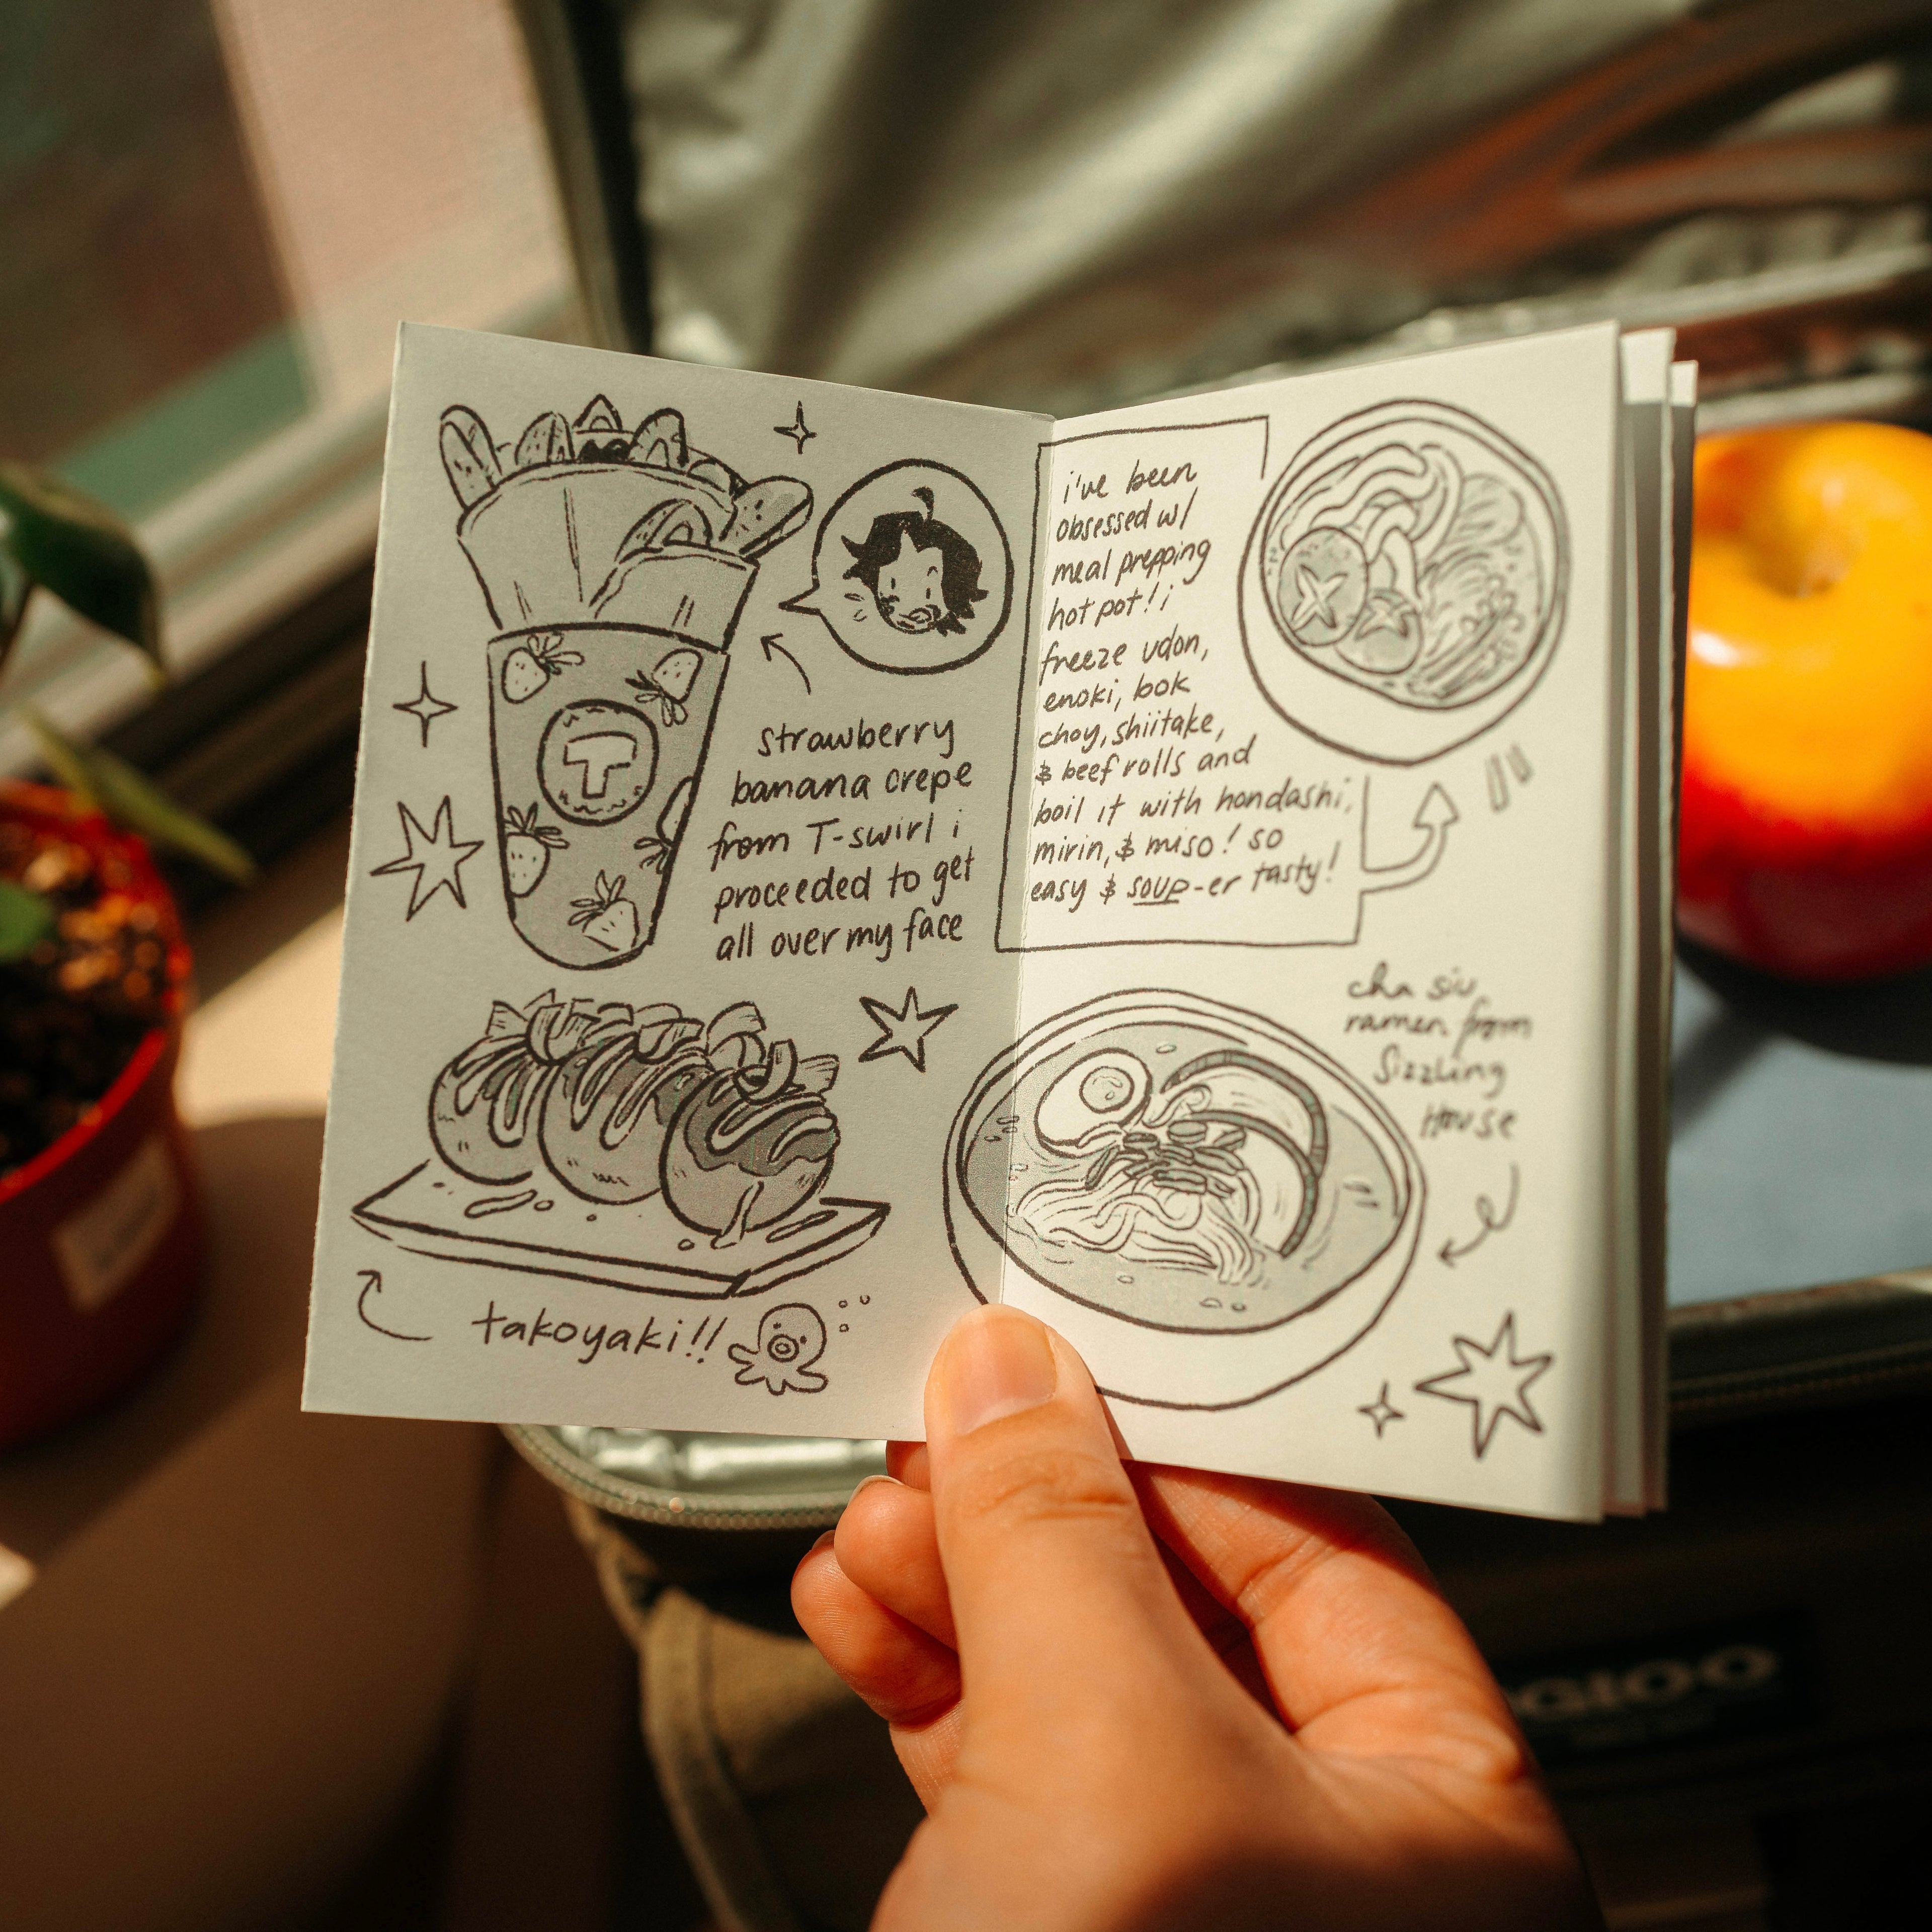 T
strawberry
banana crepe
from T-swirl i
proceeded to get
all over my face
takoyaki!!
i've been
obsessed w/
meal prepping
hot pot! i
freeze udon,
enoki, bok
choy, shiitake,
& beef rolls and
boil it with hondashi,
mirin, & miso! so
easy & soup-er tasty!
cha siu
ramen from
Sizzling
House